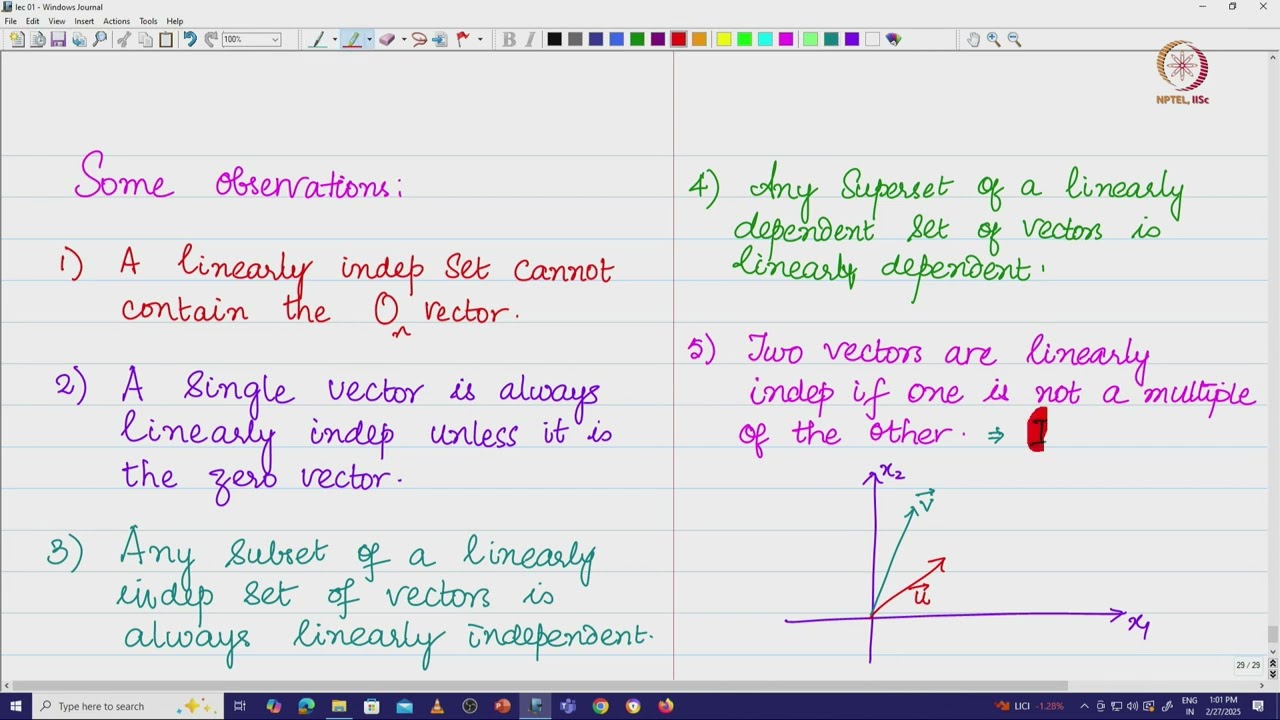 lec 01 - Windows Journal
File Edit View Insert Actions Tools Help
100%
B I
NPTEL, IISc
Some observations:
1) A linearly indep set cannot
contain the 0n vector.
2) A single vector is always
linearly indep unless it is
the zero vector.
3) Any subset of a linearly
indep set of vectors is
always linearly independent.
4) Any superset of a linearly
dependent set of vectors is
linearly dependent.
5) Two vectors are linearly
indep if one is not a multiple
of the other. ⇒ I
x2
v
u
x1
29 / 29
Type here to search
LICI -1.28%
ENG
IN
1:01 PM
2/27/2025